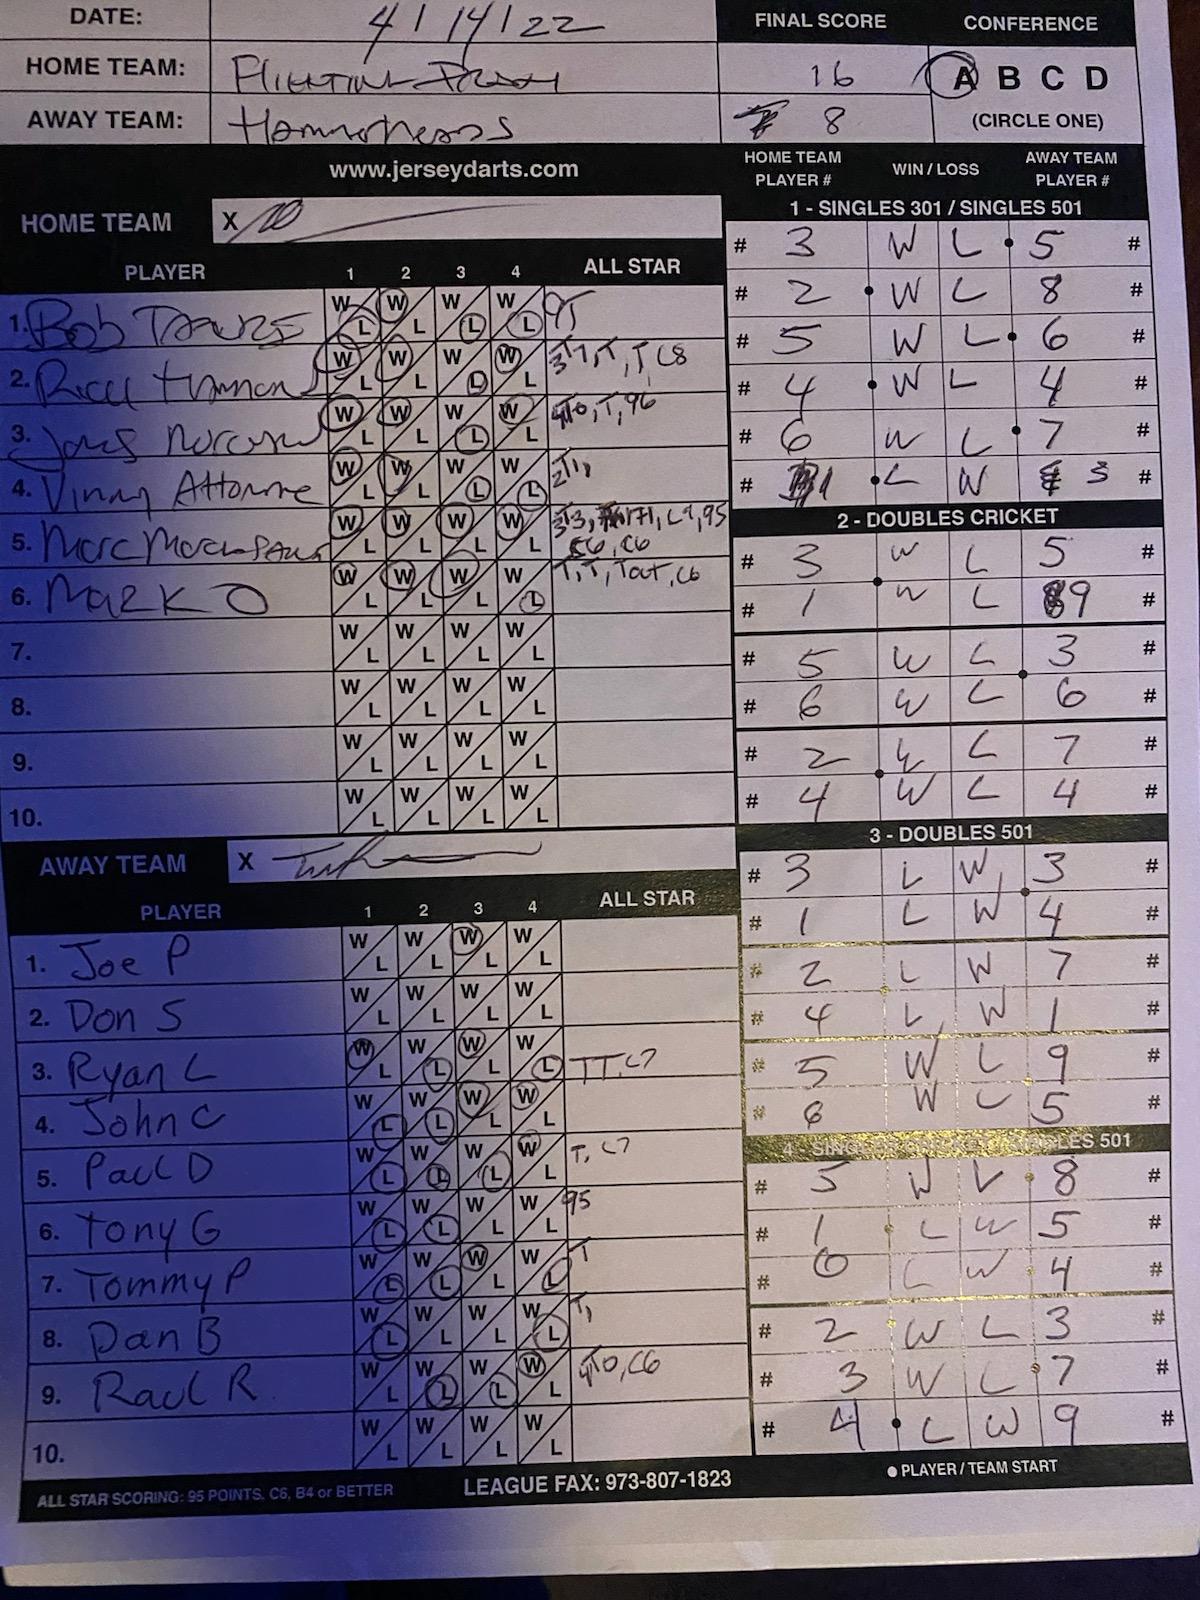 DATE: 4/14/22
FINAL SCORE
CONFERENCE
HOME TEAM:
16
A B C D
AWAY TEAM:
8
(CIRCLE ONE)
www.jerseydarts.com
HOME TEAM PLAYER #
WIN / LOSS
AWAY TEAM PLAYER #
HOME TEAM X
PLAYER 1 2 3 4 ALL STAR
1. Bob W/L W/L W/L W/L 95
2. W/L W/L W/L W/L
3. W/L W/L W/L W/L
4. Vinny W/L W/L W/L W/L
5. Marc W/L W/L W/L W/L
6. Mark O W/L W/L W/L W/L T, T, Tout, C6
7. W/L W/L W/L W/L
8. W/L W/L W/L W/L
9. W/L W/L W/L W/L
10. W/L W/L W/L W/L
AWAY TEAM X
PLAYER 1 2 3 4 ALL STAR
1. Joe P W/L W/L W/L W/L
2. Don S W/L W/L W/L W/L
3. Ryan L W/L W/L W/L W/L TT, C7
4. John C W/L W/L W/L W/L
5. Paul D W/L W/L W/L W/L T, C7
6. Tony G W/L W/L W/L W/L 95
7. Tommy P W/L W/L W/L W/L T
8. Dan B W/L W/L W/L W/L T,
9. Raul R W/L W/L W/L W/L C6
10. W/L W/L W/L W/L
ALL STAR SCORING: 95 POINTS, C6, B4 or BETTER
LEAGUE FAX: 973-807-1823
1 - SINGLES 301 / SINGLES 501
# 3 W L 5 #
# 2 W L 8 #
# 5 W L 6 #
# 4 W L 4 #
# 6 W L 7 #
# 1 L W 3 #
2 - DOUBLES CRICKET
# 3 W L 5 #
# 1 W L 9 #
# 5 W L 3 #
# 6 W L 6 #
# 2 W L 7 #
# 4 W L 4 #
3 - DOUBLES 501
# 3 L W 3 #
# 1 L W 4 #
# 2 L W 7 #
# 4 L W 1 #
# 5 W L 9 #
# 6 W L 5 #
4 - SINGLES CRICKET / SINGLES 501
# 5 W L 8 #
# 1 L W 5 #
# 6 L W 4 #
# 2 W L 3 #
# 3 W L 7 #
# 4 L W 9 #
PLAYER / TEAM START